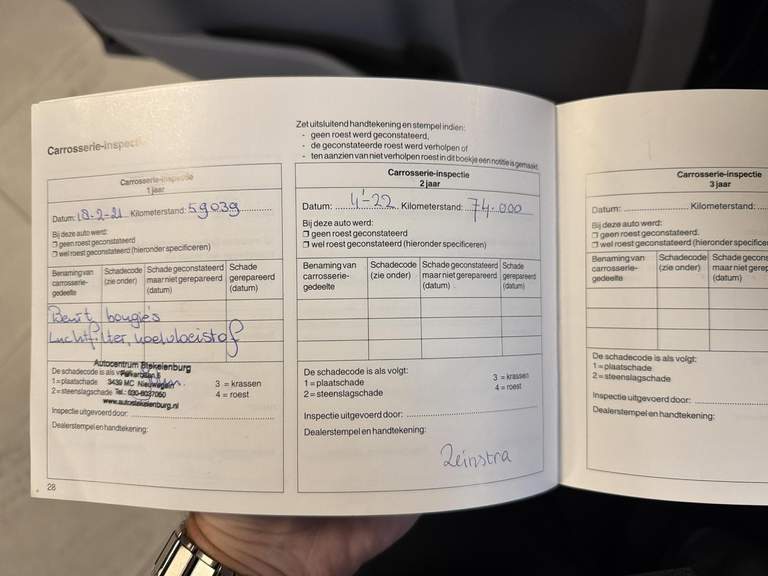 Carrosserie-inspectie
Carrosserie-inspectie
1 jaar
Datum: 18-2-21 Kilometerstand: 59039
Bij deze auto werd:
❒ geen roest geconstateerd
❒ wel roest geconstateerd (hieronder specificeren)
Benaming van carrosserie-gedeelte
Schadecode (zie onder)
Schade geconstateerd maar niet gerepareerd (datum)
Schade gerepareerd (datum)
Beurt bougie's
Luchtfilter, koelvloeistof
Autocentrum Stekelenburg
De schadecode is als
Parkerbaan 5
1 = plaatschade
3439 MC Nieuwegein
3 = krassen
2 = steenslagschade
Tel.: 030-6037060
4 = roest
www.autostekelenburg.nl
Inspectie uitgevoerd door:
Dealerstempel en handtekening:
28
Zet uitsluitend handtekening en stempel indien:
- geen roest werd geconstateerd,
- de geconstateerde roest werd verholpen of
- ten aanzien van niet verholpen roest in dit boekje een notitie is gemaakt.
Carrosserie-inspectie
2 jaar
Datum: 4-22 Kilometerstand: 74.000
Bij deze auto werd:
❒ geen roest geconstateerd
❒ wel roest geconstateerd (hieronder specificeren)
Benaming van carrosserie-gedeelte
Schadecode (zie onder)
Schade geconstateerd maar niet gerepareerd (datum)
Schade gerepareerd (datum)
De schadecode is als volgt:
1 = plaatschade 3 = krassen
2 = steenslagschade 4 = roest
Inspectie uitgevoerd door:
Dealerstempel en handtekening:
Zeinstra
Carrosserie-inspectie
3 jaar
Datum: Kilometerstand:
Bij deze auto werd:
❒ geen roest geconstateerd.
❒ wel roest geconstateerd (hieronder specificer
Benaming van carrosserie-gedeelte
Schadecode (zie onder)
Schade gecons
maar niet gerep
(datum)
De schadecode is als volgt:
1 = plaatschade
2 = steenslagschade
Inspectie uitgevoerd door:
Dealerstempel en handtekening: